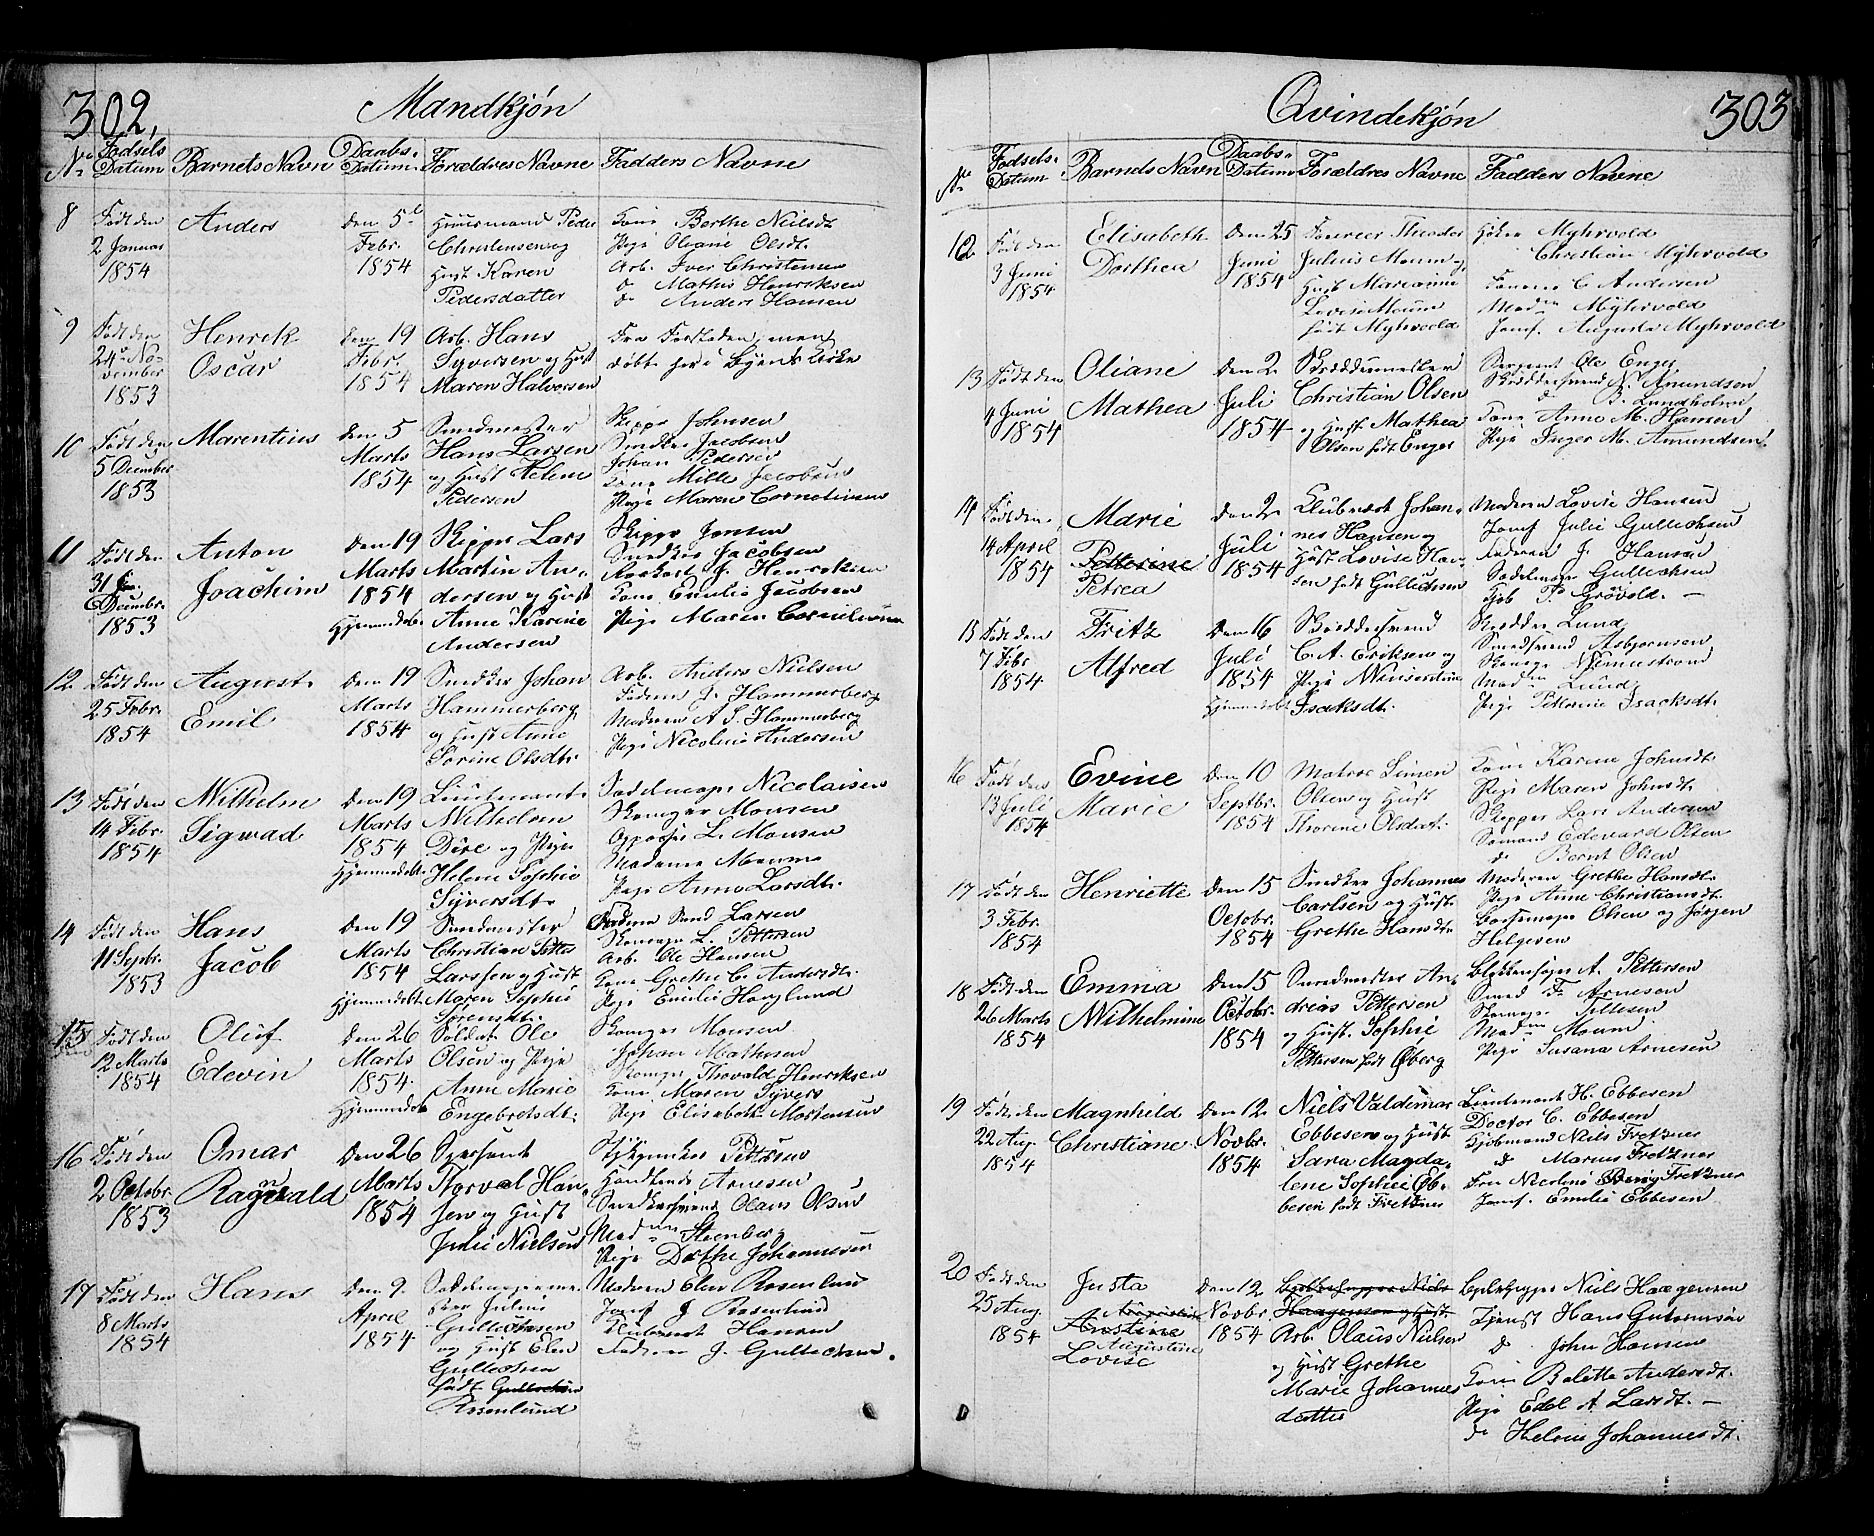 302,
Mandkjön
No Födsels Datum
Barnets Navn
Daabs-Datum
Forældres Navne
Fadders Navne
8
Födt den
2 Januar
1854
Anders
den 5te
Febr.
1854
Huusmand Peder
Christensen og
Hust. Karen
Pedersdatter
Kone Berthe Nielsdt
Pige Oliane Olsdt.
Arb. Iver Christensen
do Mathis Henriksen
do Anders Hansen
9
Födt den
24de No-
vember
1853
Henrik
Oscar
den 19
Febr.
1854
Arb. Hans
Syversen og Hust
Maren Halvorsen
Fra Forstaden, men
döbt her i Byens Kirke
10
Födt den
5 December
1853
Marentius
den 5
Marts
1854
Smedmester
Hans Larsen
og Hust Helene
Pedersen
Skipp. Johnsen
Snedker Jacobsen
Johan Pedersen
Kone Mille Jacobsen
Pige Maren Cornelius
11
Födt den
31
Decembr.
1853
Anton
Joachim
den 19
Marts
1854
Hjemmedöbt
Skippr Lars
Martin An-
dersen og Hust
Anne Karine
Andersen
Skippr Jonsen
Snedker Jacobsen
J. Henriksen
Kone Emilie Jacobsen
Pige Maren Cornelius
12
Födt den
25 Febr.
1854
August
Emil
den 19
Marts
1854
Snedker Johan
Hammerberg
og Hust Anne
Sorine Olsdt.
Arb. Anders Nielsen
Faderen J. Hammerberg
Moderen A. S. Hammerberg
Pige Nicoline Andersen
13
Födt den
14 Febr.
1854
Wilhelm
Sigwad
den 19
Marts
1854
Hjemmedöbt.
Lieutenant
Wilhelm
Dire og Pige
Helene Sophie
Syversdt.
Sadelmager Nicolaisen
Skomager Monsen
L. Monsen
Madame Monsen
Pige Anne Larsdt.
14
Födt den
11 Sepbr.
1853
Hans
Jacob
den 19
Marts
1854
Hjemmedöbt
Smedmester
Christian Petter
Larssen og Hust
Maren Sophie
Sorensdt.
Faderen Smed Larsen
Skomager L. Pettersen
Arb. Ole Hansen
Kone Grethe C. Andersdt.
Pige Emilie Haglund
15
Födt den
12 Marts
1854
Oluf
Edevin
den 26
Marts
1854.
Hjemmedöbt
Soldat Ole
Olsen og Pige
Anne Marie
Engebretsdt.
Skomager Monsen
Johan Mathesen
Skomager Thovald Henriksen
Kone Maren Syvers
Pige Elisabeth Mortensen
16
Födt den
2 Octobr.
1853
Omar
Ragnvald
den 26
Marts
1854
Sergeant
Torval Han-
sen og Hust
Julie Nielsen
Pettersen
Arnesen
Snedkersvend Olaus Olsen
Madme Steenberg
Pige Dorthe Johannesen
17
Födt den
8 Marts
1854
Hans
den 9
April
1854
Sadelmagerme-
ster Julius
Gullichsen
og Hust Elen
Gullichsen
födt Gullichsen
Rosenlund
Moderen Elen Rosenlund
Jomf J. Rosenlund
Klubvært Hansen
Faderen J. Gullichsen.
303
Qvindekjön
No Födsels-Datum
Barnets Navn
Daabs-Datum
Forældres Navne
Fadders Navne
12
Födt den
3 Juni
1854
Elisabeth
Dorthea
den 25
Juni
1854
Foureer Theodor
Julius Moum og
Hust Marianne
Lovise Moum
födt Myhrvold
Höker Myhrvold
Christian Myhrvold
C Andersen
Madm Myhrvold
Jomf. Augusta Myhrvold
13
Födt den
4 Juni
1854
Oliane
Mathea
den 2
Juli
1854
Skræddermester
Christian Olsen
og Hust Mathea
Olsen födt Enger
Sergeant Ole Enger
Skræddersvend N. Amundsen
do B. Lundholm
Kone Anne M. Hansen
Pige Inger M. Amundsen
14
Födt den
14 April
1854
Marie
Petterine
Petrea
den 2
Juli
1854
Klubvært Johan-
nes Hansen og
Hust Lovise Han-
sen födt Gullichsen
Moderen Lovise Hansen
Jomf Julie Gullichsen
Faderen J. Hansen
Sadelmager Gullichsen
Kjöb. P. Grövold. —
15
Födt den
7 Febr
1854
Fritz
Alfred
den 16
Juli
1854
Hjemmedöbt
Skræddersvend
C. A. Eriksen og
Pige
Isaksdt.
Skrædder Lund
Smedsvend Asbjornsen
Madm Lund
Pige Petrine Isacksdt.
16
Födt den
13 Juli
1854
Evine
Marie
den 10
Septbr.
1854
Matros Simen
Olsen og Hust
Thorine Olsdat.
Kone Karen Johnsdt.
Pige Maren Johnsdt.
Skipper Lars Andersen
Sömand Edevard Olsen
do Bernt Olsen
17
Födt den
3 Febr.
1854
Henriette
den 15
Octobr.
1854
Snedker Johannes
Carlsen og Hust.
Grethe Hansdt.
Moderen Grethe Hansdt.
Pige Anne Christiansdt.
Garfemager Olsen og Jörgen
Helgesen
18
Födt den
26 Marts
1854
Emma
Wilhelmine
den 15
Octobr.
1854
Smedmester An-
dreas Pettersen
og Hust. Sophie
Pettersen födt Öberg
Blikkenslager A. Pettersen
Smed Fr. Arnesen
Skomager Tittesen
Madme Moum
Pige Susana Arnesen
19
Födt den
22 Aug.
1854
Magnhild
Christiane
den 12
Novbr.
1854
Niels Valdemar
Ebbesen og Hust
Sara Magda-
lene Sophie Eb-
besen födt Fretzner
Lieutenant H. Ebbesen
Doctor C. Ebbesen
Kjöbmand Niels Fretzner
do Marius Fretzner
Fru Nicoline Fretzner
Jomf. Emilie Ebbesen
20
Födt den
25 Aug.
1854
Justa
Augustine
Lovise
den 12
Novbr.
1854
Niels
Haagensen og Hust.
Arb. Olaus Nielsen
og Hust Grethe
Marie Johannes
datter
Niels Haagensen
Tjenst Hans Gutormsön
do John Hansen
Kone Bolette Andersdt.
Pige Edel A Larsdt. —
do Helene Johannesdt.